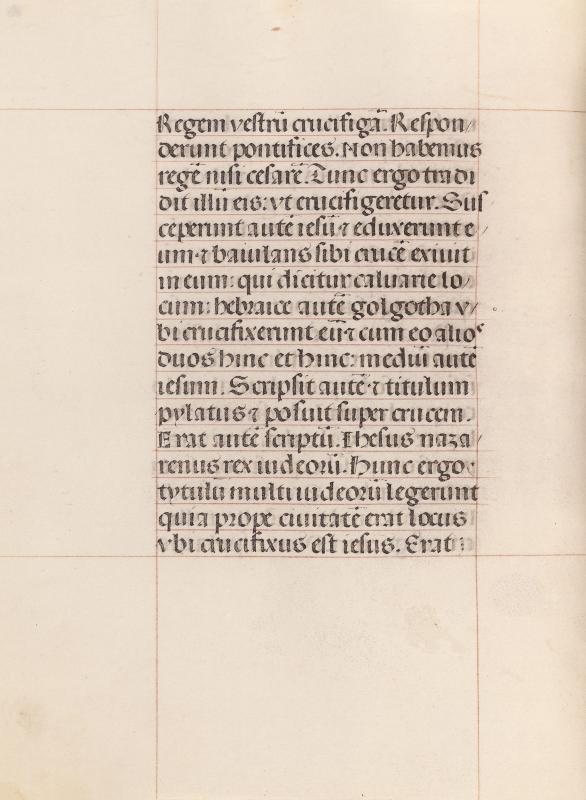 Regem vestrū crucifigā. Respon/
derunt pontifices. Non habemus
regē nisi cesarē. Tunc ergo tradi
dit illū eis: vt crucifigeretur. Sus
ceperunt autē iesū ⁊ eduxerunt e/
um ⁊ baiulans sibi crucē exiuit
in eum: qui dicitur caluarie lo/
cum: hebraice autē golgotha v/
bi crucifixerunt eū ⁊ cum eo alios
duos hinc et hinc: mediū autē
iesum. Scripsit autē ⁊ titulum
pylatus ⁊ posuit super crucem.
Erat autē scriptū. Ihesus naza/
renus rex iudeorū. Hunc ergo
tytulū multi iudeorū legerunt
quia prope ciuitatē erat locus
vbi crucifixus est iesus. Erat